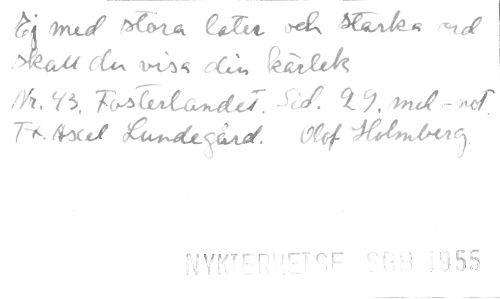 Ej med stora later och starka ord
skall du visa din kärlek
Nr. 43. Fosterlandet. Sid. 29. mel-not.
Tx. Axel Lundegård. Olof Holmberg.
NYKTERHETSF SGB 1955